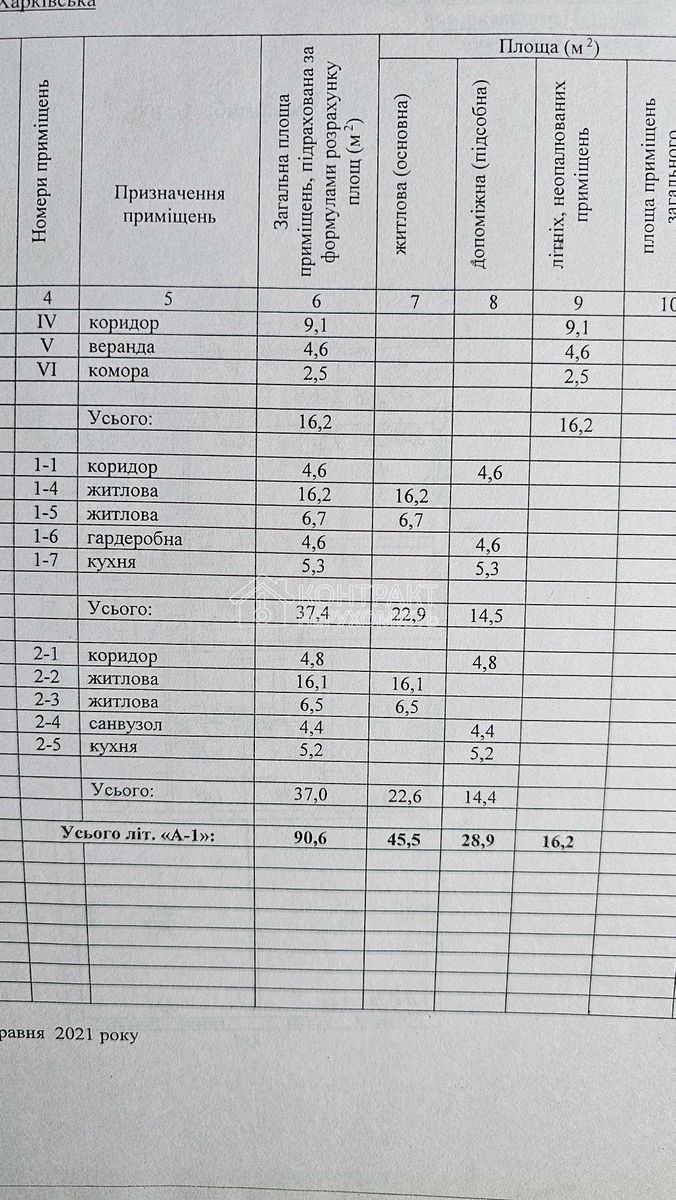 Харківська
Номери приміщень
Призначення
приміщень
Загальна площа
приміщень, підрахована за
формулами розрахунку
площ (м²)
Площа (м²)
житлова (основна)
допоміжна (підсобна)
літніх, неопалюваних
приміщень
площа приміщень
загального
4 5 6 7 8 9 10
IV коридор 9,1 9,1
V веранда 4,6 4,6
VI комора 2,5 2,5
Усього: 16,2 16,2
1-1 коридор 4,6 4,6
1-4 житлова 16,2 16,2
1-5 житлова 6,7 6,7
1-6 гардеробна 4,6 4,6
1-7 кухня 5,3 5,3
КОНТРАКТ
НЕРУХОМІСТЬ
Усього: 37,4 22,9 14,5
2-1 коридор 4,8 4,8
2-2 житлова 16,1 16,1
2-3 житлова 6,5 6,5
2-4 санвузол 4,4 4,4
2-5 кухня 5,2 5,2
Усього: 37,0 22,6 14,4
Усього літ. «А-1»: 90,6 45,5 28,9 16,2
равня 2021 року